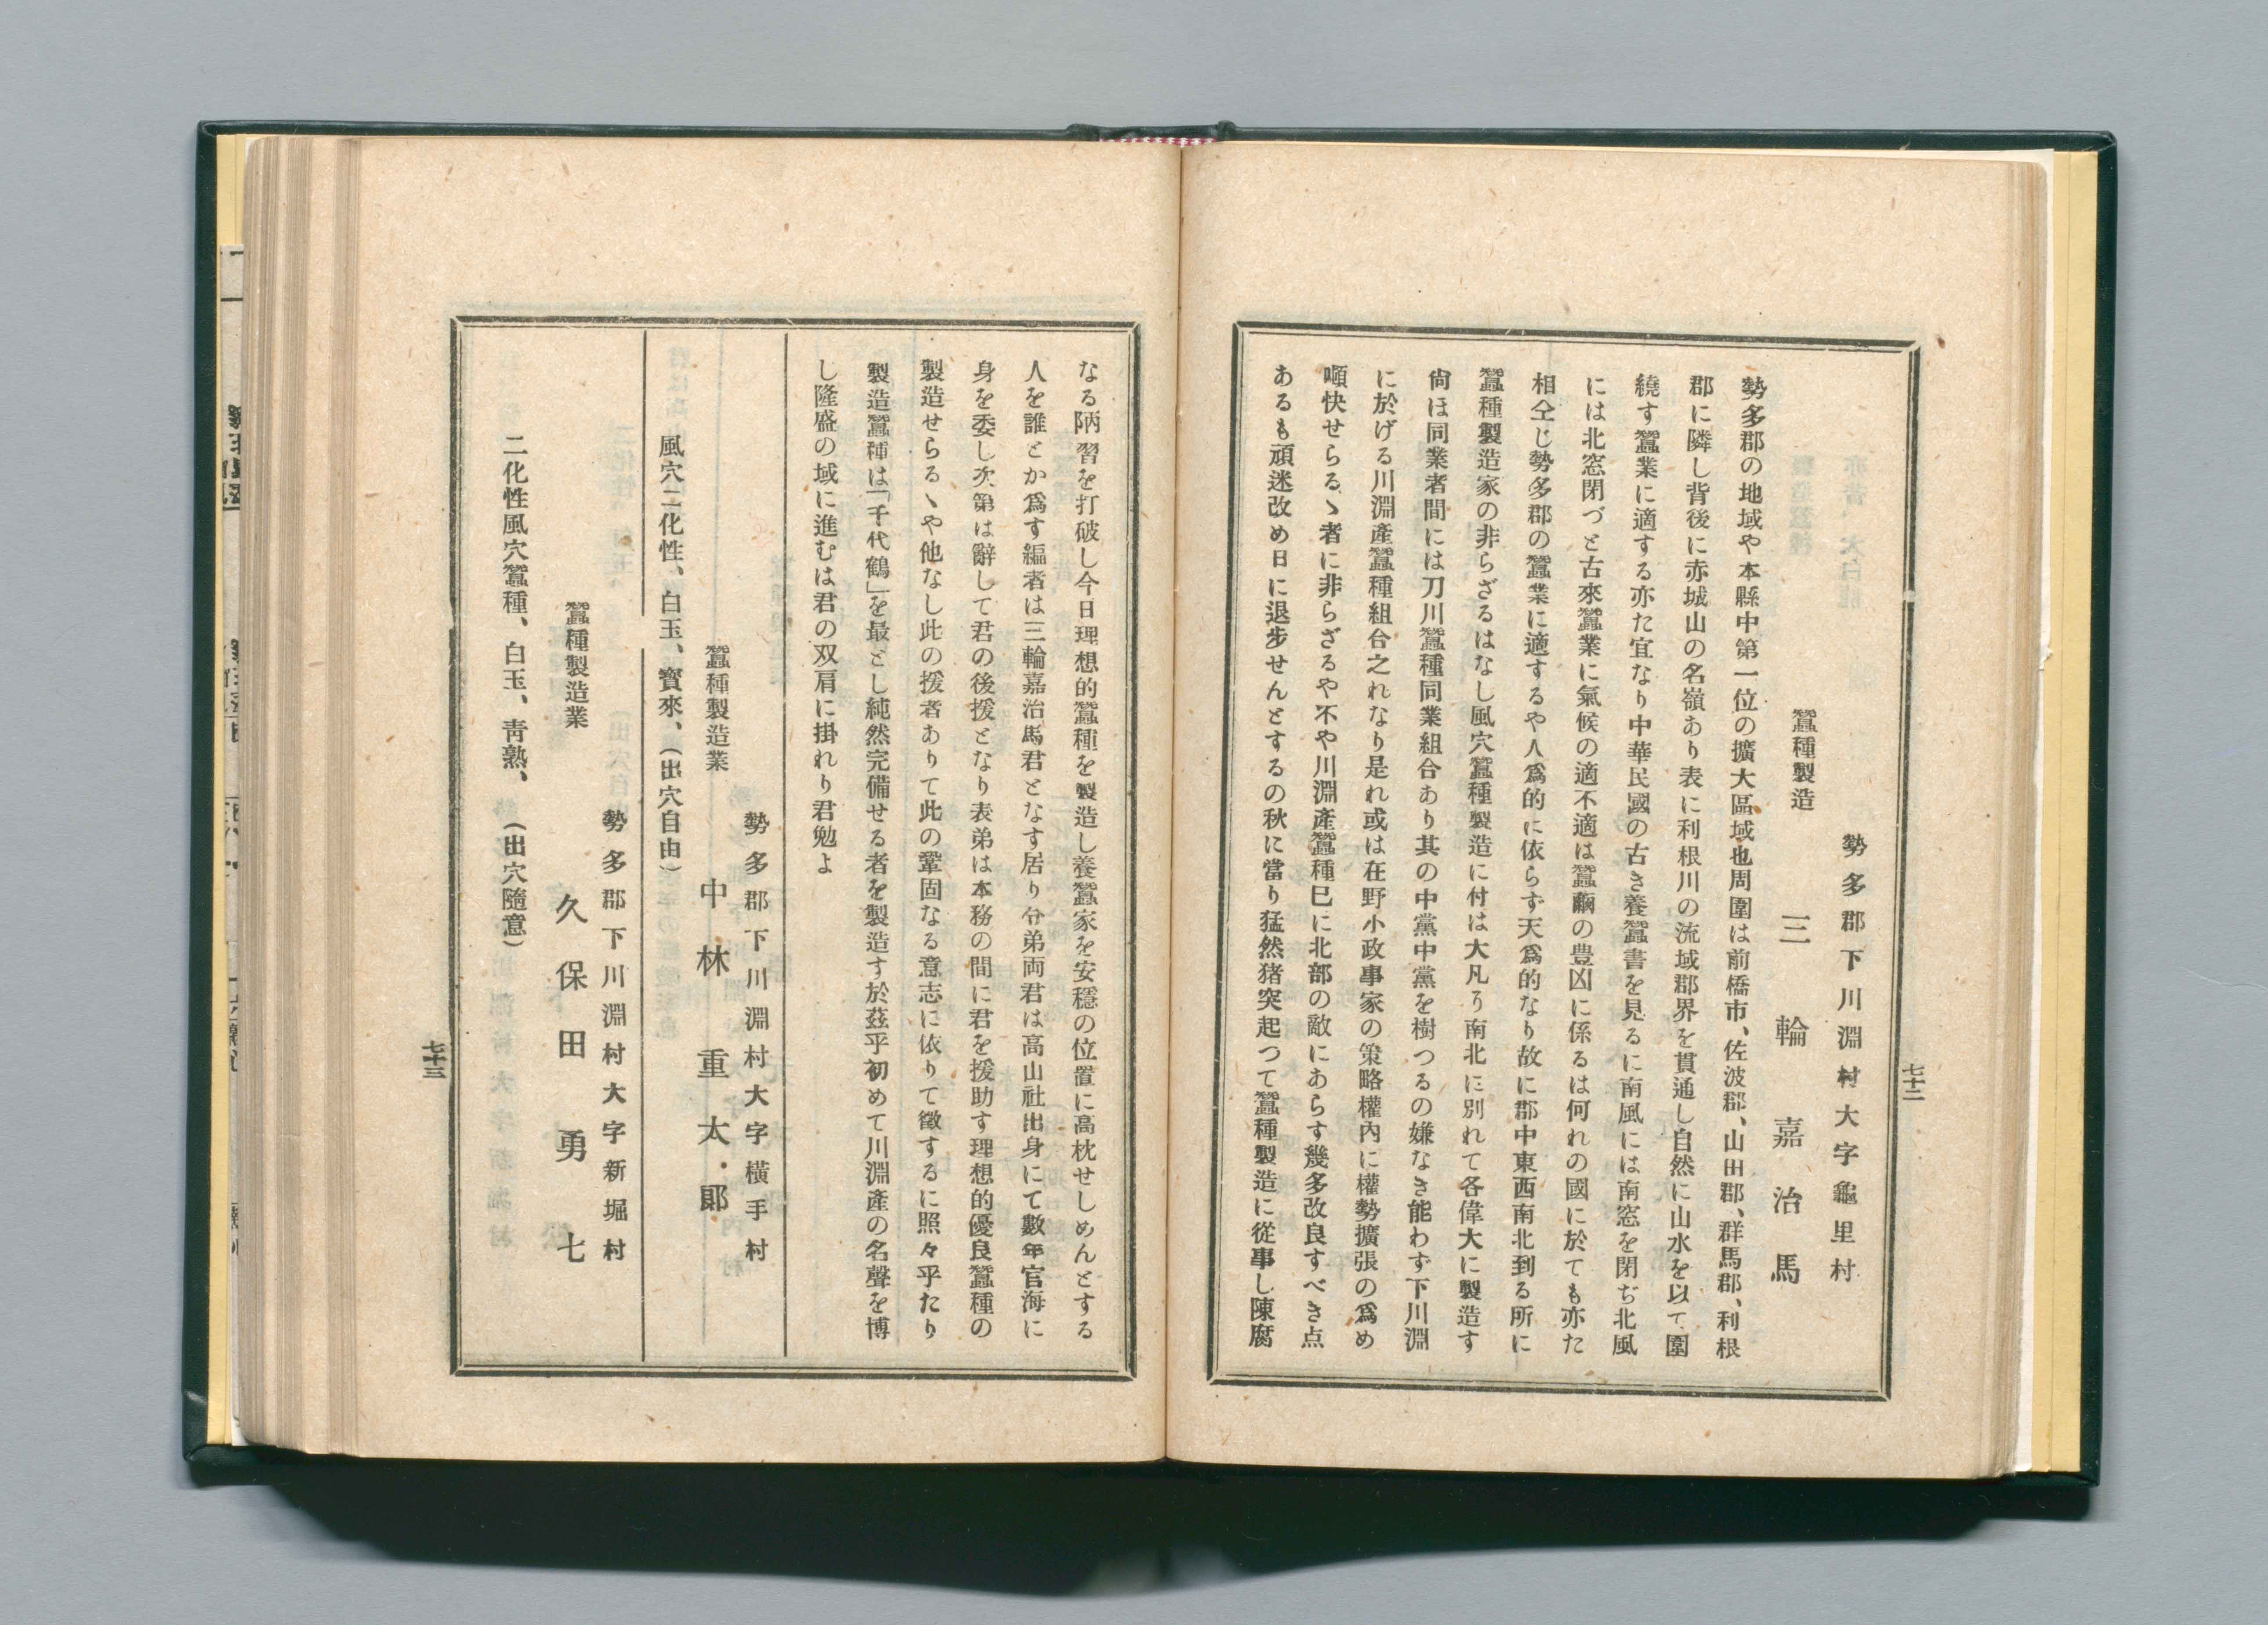 勢多郡下川淵村大字龜里村
蠶種製造
三輪嘉治馬
勢多郡の地域や本縣中第一位の擴大區域也周圍は前橋市、佐波郡、山田郡、群馬郡、利根
郡に隣し背後に赤城山の名嶺あり表に利根川の流域郡界を貫通し自然に山水を以て圍
繞す蠶業に適する亦た宜なり中華民國の古き養蠶書を見るに南風には南窓を閉ぢ北風
には北窓閉づと古來蠶業に氣候の適不適は蠶繭の豊凶に係るは何れの國に於ても亦た
相仝じ勢多郡の蠶業に適するや人爲的に依らず天爲的なり故に郡中東西南北到る所に
蠶種製造家の非らざるはなし風穴蠶種製造に付は大凡り南北に別れて各偉大に製造す
尙ほ同業者間には刀川蠶種同業組合あり其の中黨中黨を樹つるの嫌なき能わず下川淵
に於げる川淵產蠶種組合之れなり是れ或は在野小政事家の策略權內に權勢擴張の爲め
嚬快せらるゝ者に非らざるや不や川淵產蠶種巳に北部の敵にあらす幾多改良すべき点
あるも頑迷改め日に退步せんとするの秋に當り猛然猪突起つて蠶種製造に從事し陳腐
七十二
なる陋習を打破し今日理想的蠶種を製造し養蠶家を安穩の位置に高枕せしめんとする
人を誰とか爲す編者は三輪嘉治馬君となす居り分弟両君は高山社出身にて數年官海に
身を委し次第は辭して君の後援となり表弟は本務の間に君を援助す理想的優良蠶種の
製造せらるゝや他なし此の援者ありて此の鞏固なる意志に依りて徵するに照々乎たり
製造蠶種は「千代鶴」を最とし純然完備せる者を製造す於玆乎初めて川淵產の名聲を博
し隆盛の域に進むは君の双肩に掛れり君勉よ
勢多郡下川淵村大字橫手村
蠶種製造業
中林重太郞
風穴二化性、白玉、寶來、(出穴自由)
勢多郡下川淵村大字新堀村
蠶種製造業
久保田勇七
二化性風穴蠶種、白玉、靑熟、(出穴隨意)
七十三